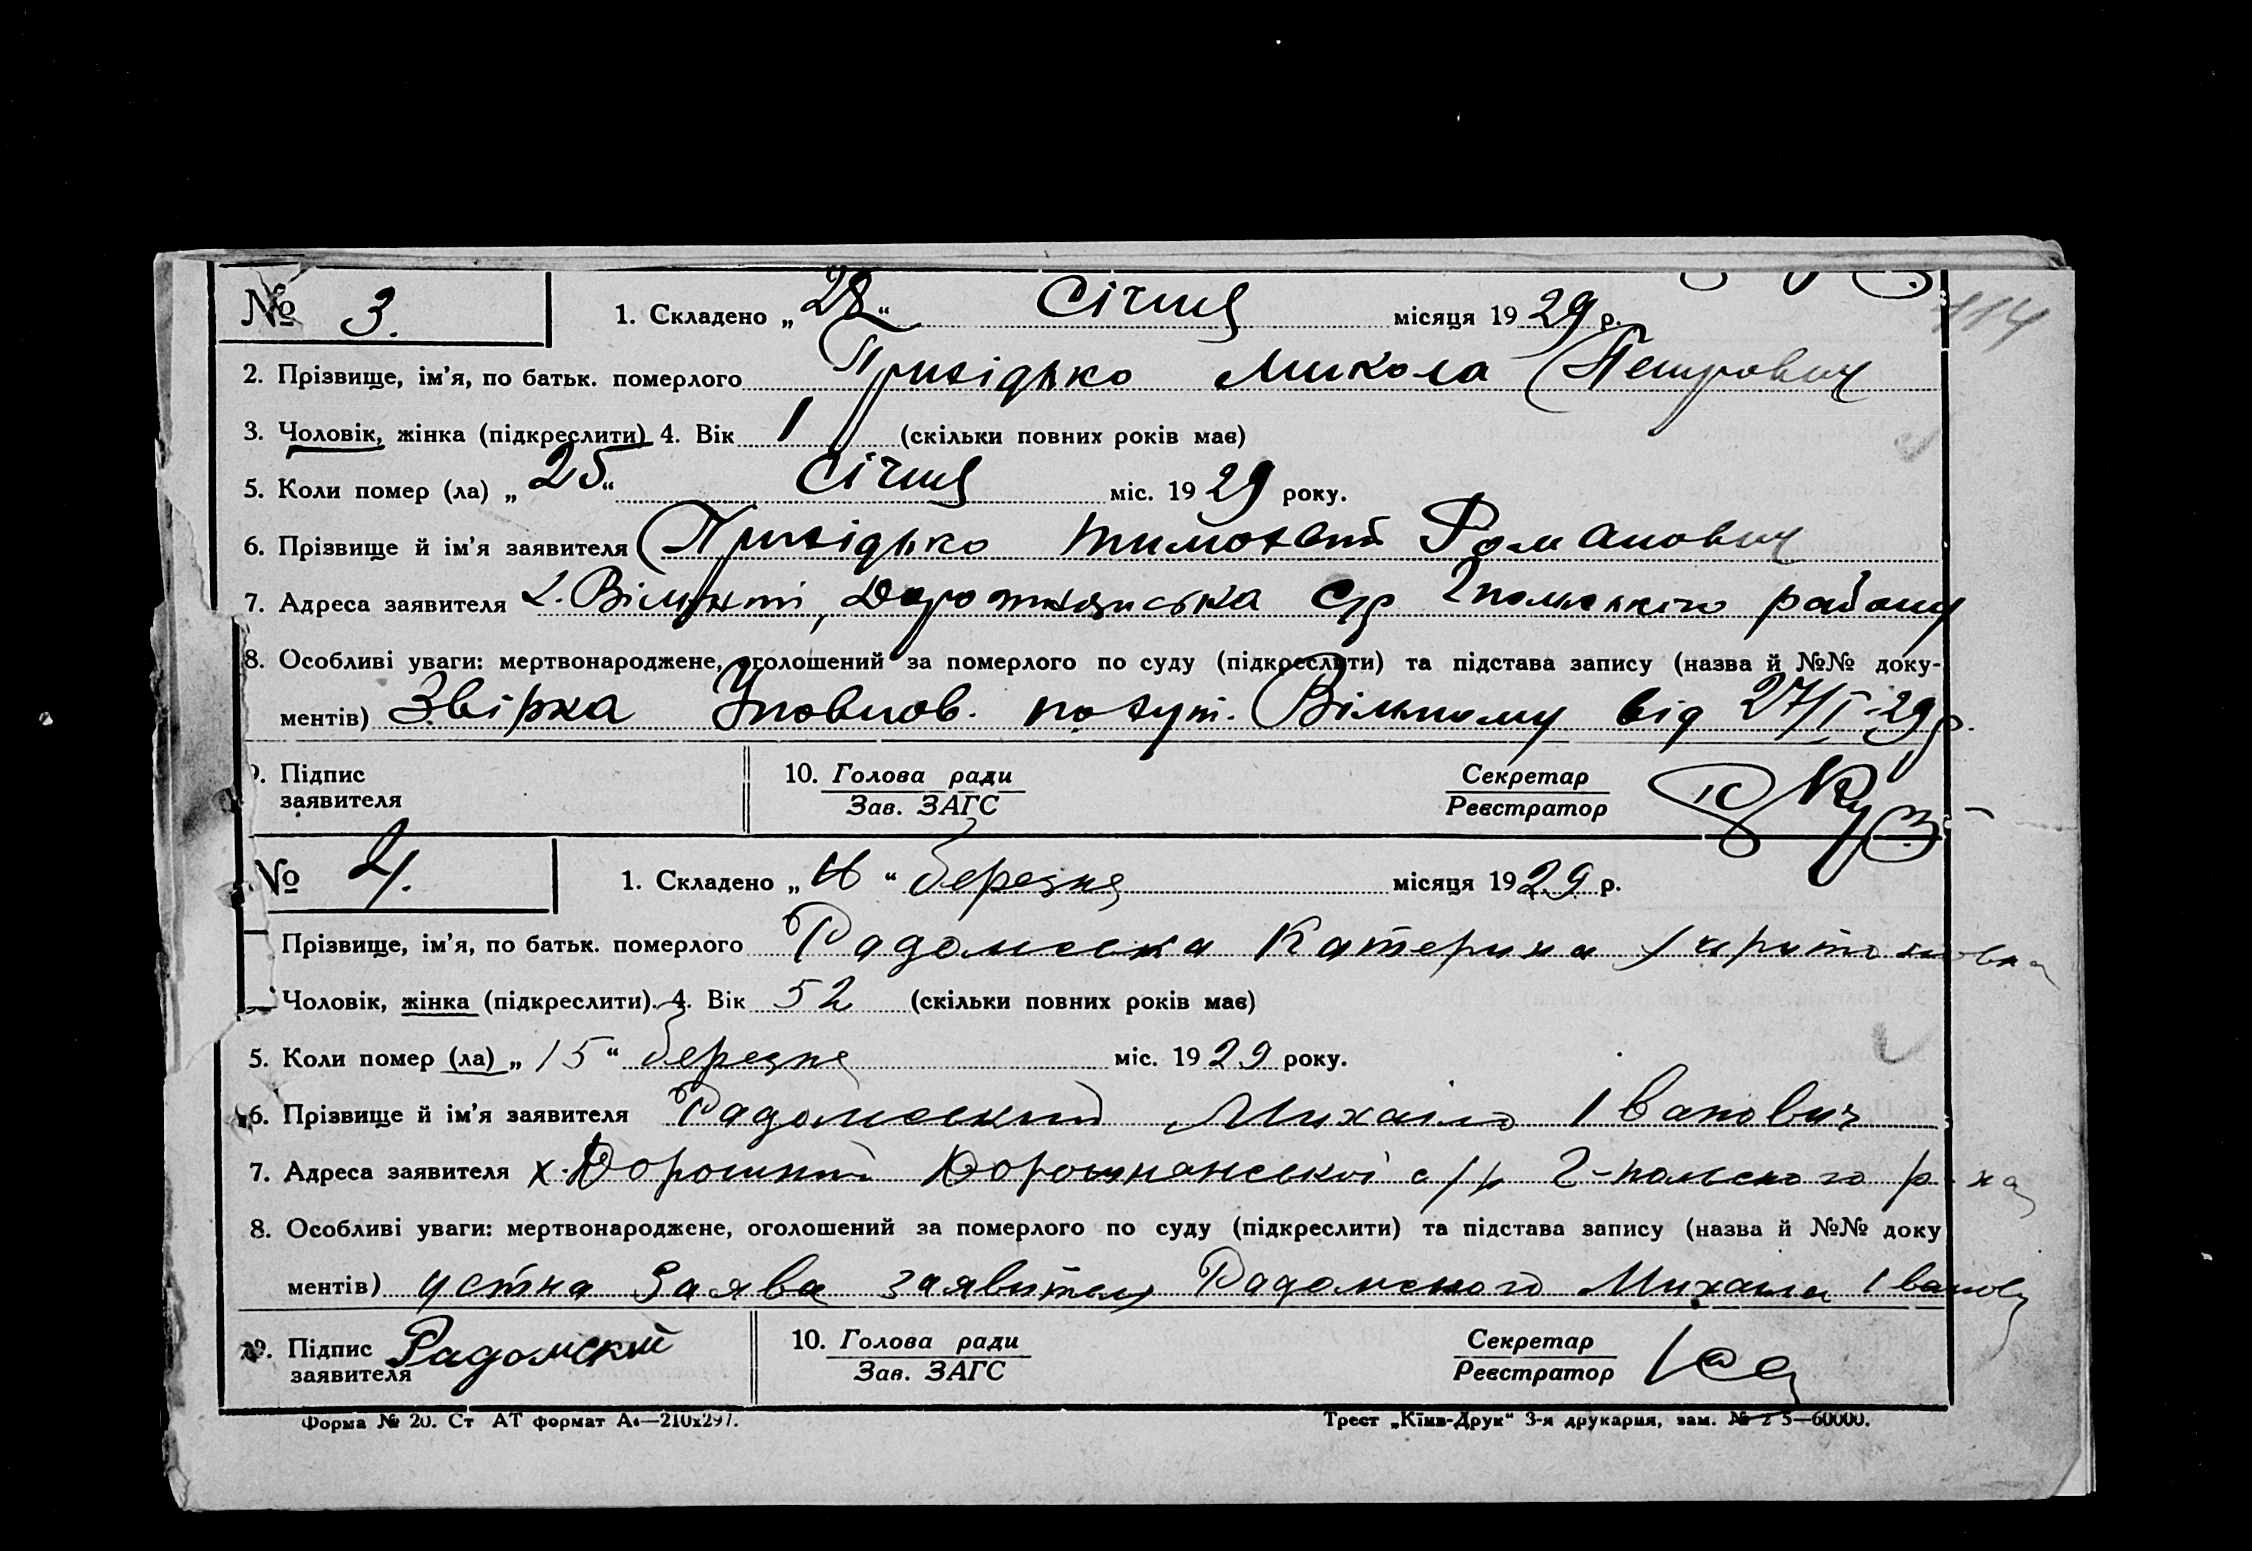 114
№ 3. 1. Складено „28“ Січня місяця 1929 р.
2. Прізвище, ім’я, по батьк. померлого Пригідько Микола Петрович
3. Чоловік, жінка (підкреслити) 4. Вік 1 (скільки повних років має)
5. Коли помер (ла) „25“ Січня міс. 1929 року.
6. Прізвище й ім’я заявителя Пригідько Романович
7. Адреса заявителя району
8. Особливі уваги: мертвонароджене, оголошений за померлого по суду (підкреслити) та підстава запису (назва й №№ доку-
ментів) Звірка Уповнов. від 27/I-29 р.
9. Підпис заявителя 10. Голова ради Зав. ЗАГС Секретар Реєстратор
№ 4. 1. Складено „16“ березня місяця 1929 р.
Прізвище, ім’я, по батьк. померлого Радомська Катерина
Чоловік, жінка (підкреслити). 4. Вік 52 (скільки повних років має)
5. Коли помер (ла) „15“ березня міс. 1929 року.
6. Прізвище й ім’я заявителя Радомський Михаіло Іванович
7. Адреса заявителя х. с/р 2-польского р-на
8. Особливі уваги: мертвонароджене, оголошений за померлого по суду (підкреслити) та підстава запису (назва й №№ доку
ментів) устна заява заявителя Радомского Михаила
9. Підпис заявителя Радомскій 10. Голова ради Зав. ЗАГС Секретар Реєстратор
Форма № 20. Ст АТ формат А4—210х297. Трест „Київ-Друк“ 3-я друкарня, зам. №